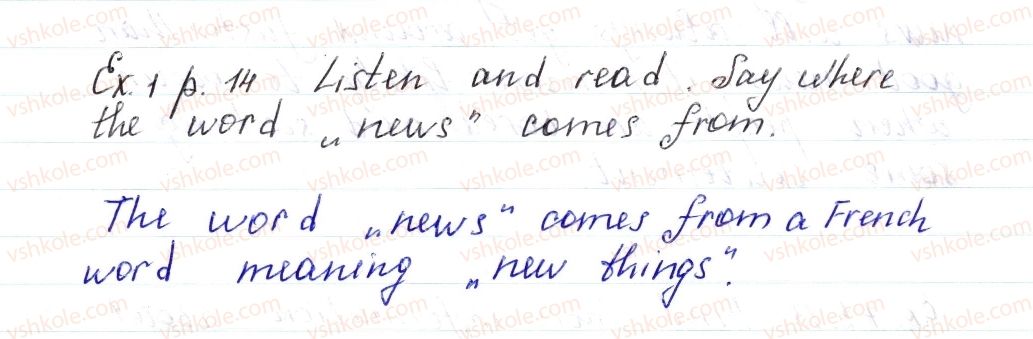 Ex. 1 p. 14 Listen and read. Say where
the word „news" comes from.
The word „news" comes from a French
word meaning „new things".